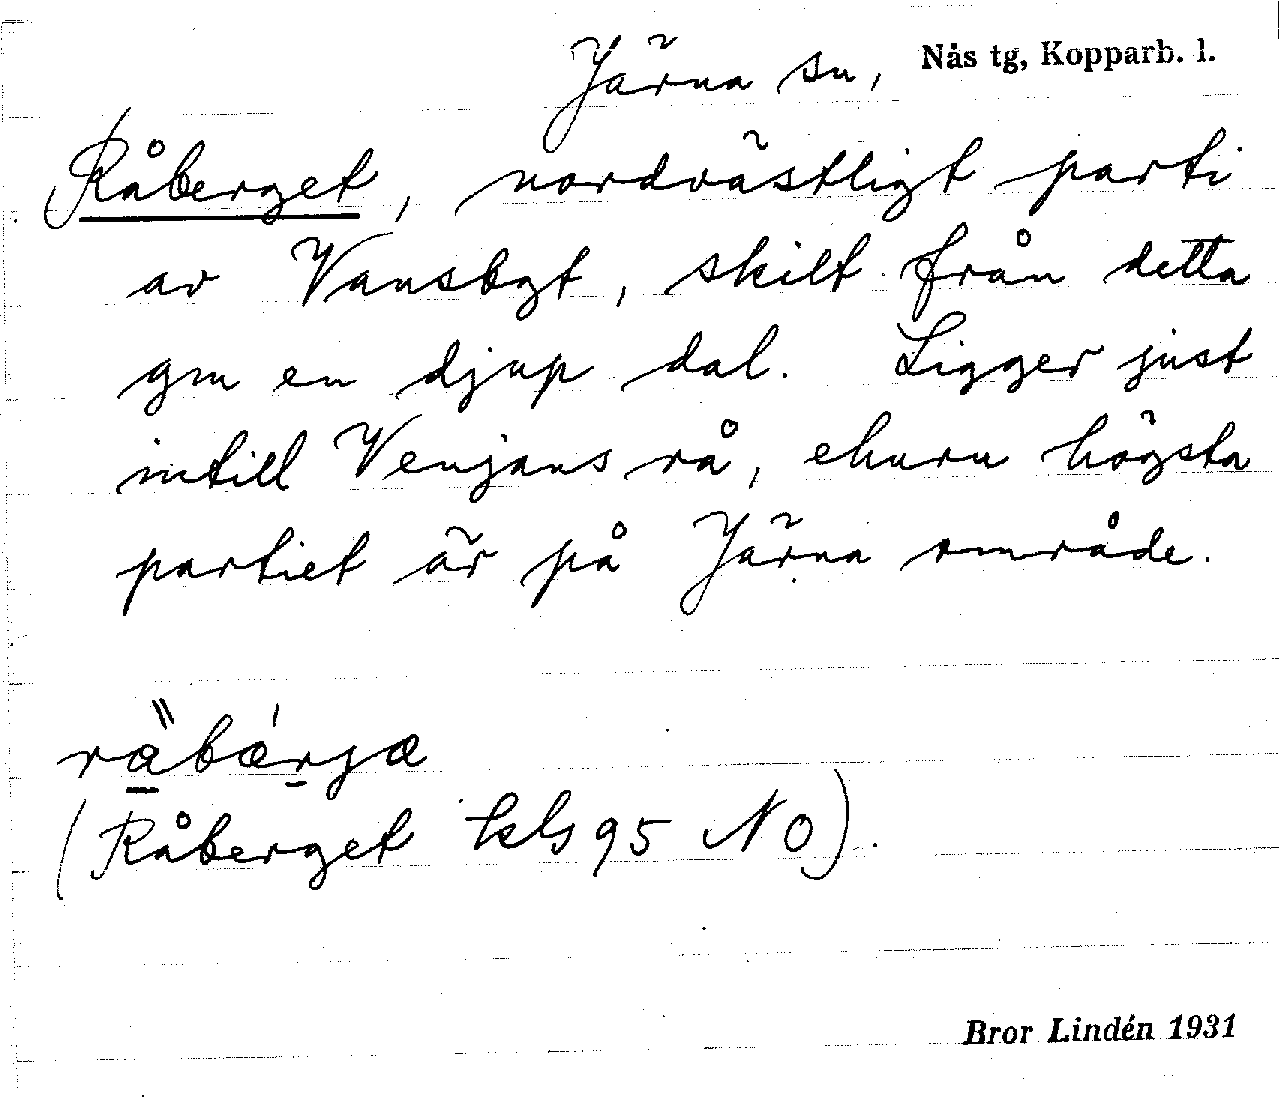 Järna sn, Nås tg, Kopparb. l.
Råberget, nordvästligt parti
av Vansbgt, skilt från detta
gm en djup dal. Ligger just
intill Venjans rå, ehuru högsta
partiet är på Järna område.
råbærjæ
(Råberget kbl 95 NO).
Bror Lindén 1931